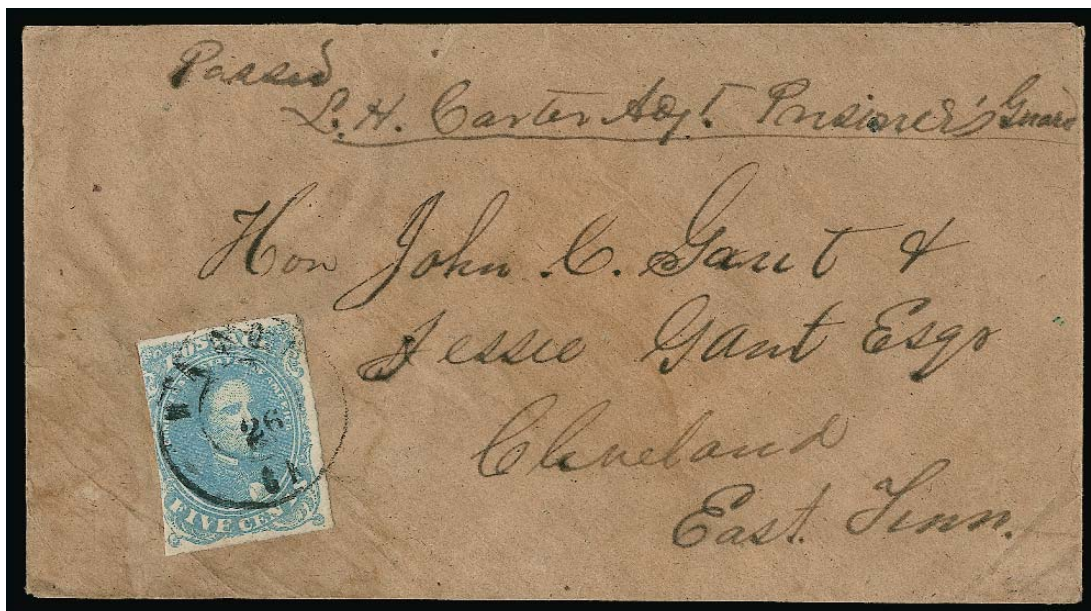 Passed
L. H. Carter Adjt. Prisoner's Guard
Hon John C. Gaut &
Jessee Gaut Esqr
Cleveland
East. Tenn.
POSTAGE
26
61
FIVE CENTS